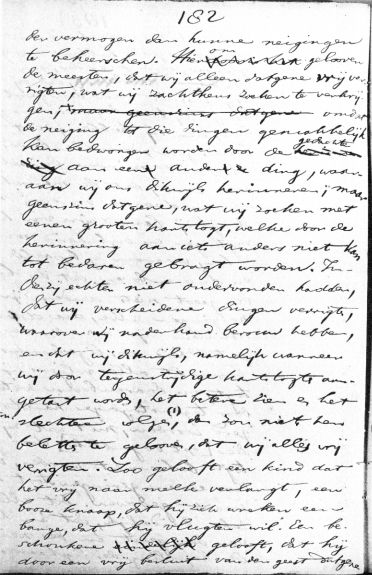 182
der vermogen dan hunne neigingen
te beheerschen. Hierom gelooven
de meesten, dat wij alleen datgene vrij ver-
rigten, wat wij zachtkens zoeken te verkrij-
gen, omdat
de neiging tot die dingen gemakkelijk
kan bedwongen worden door de gedachte
aan een ander ding, waar-
aan wij ons dikwijls herinneren; maar
geenszins datgene, wat wij zoeken met
eenen grooten hartstogt, welke door de
herinnering aan iets anders niet kan
tot bedaren gebragt worden. In-
dien zij echter niet ondervonden hadden,
dat wij verscheidene dingen verrigten,
waarover wij naderhand berouw hebben,
en dat wij dikwijls, namelijk wanneer
wij door tegenstrijdige hartstogten aan-
getast worden, het betere zien en het
slechtere volgen (1), dan zou niets hen
beletten te gelooven, dat wij alles vrij
verrigten. Zoo gelooft een kind dat
het vrij naar melk verlangt, een
booze knaap, dat hij zich wreken een
bange, dat hij vlugten wil. Een be-
schonkene gelooft, dat hij
door een vrij besluit van den geest datgene